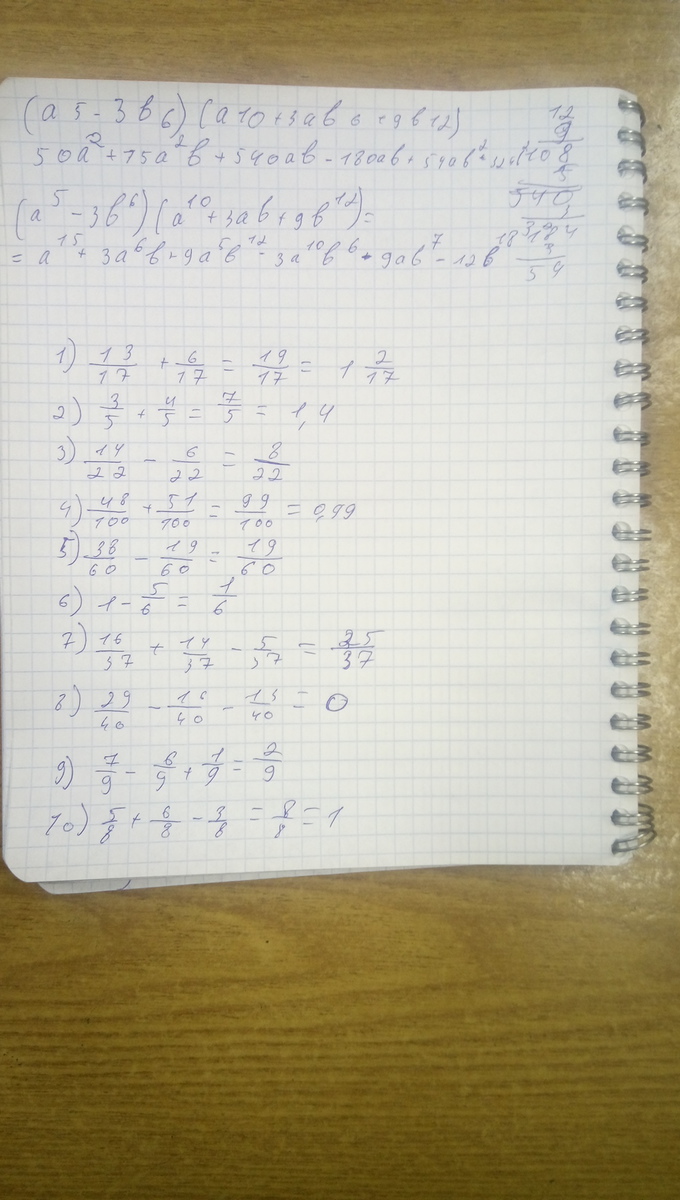 (a5-3в6)(a10+3aв6+9в12)
50a²+75a²в+540aв-180aв+54aв²
(a⁵-3в⁶)(a¹⁰+3aв+9в¹²)=
=a¹⁵+3a⁶в+9a⁵в¹²-3a¹⁰в⁶-9aв⁷-12в¹⁸
12
9
108
5
540
3
54
1) 13/17 + 6/17 = 19/17 = 1 2/17
2) 3/5 + 4/5 = 7/5 = 1,4
3) 14/22 - 6/22 = 8/22
4) 48/100 + 51/100 = 99/100 = 0,99
5) 38/60 - 19/60 = 19/60
6) 1 - 5/6 = 1/6
7) 16/37 + 14/37 - 5/37 = 25/37
8) 29/40 - 16/40 - 13/40 = 0
9) 7/9 - 6/9 + 1/9 = 2/9
10) 5/8 + 6/8 - 3/8 = 8/8 = 1